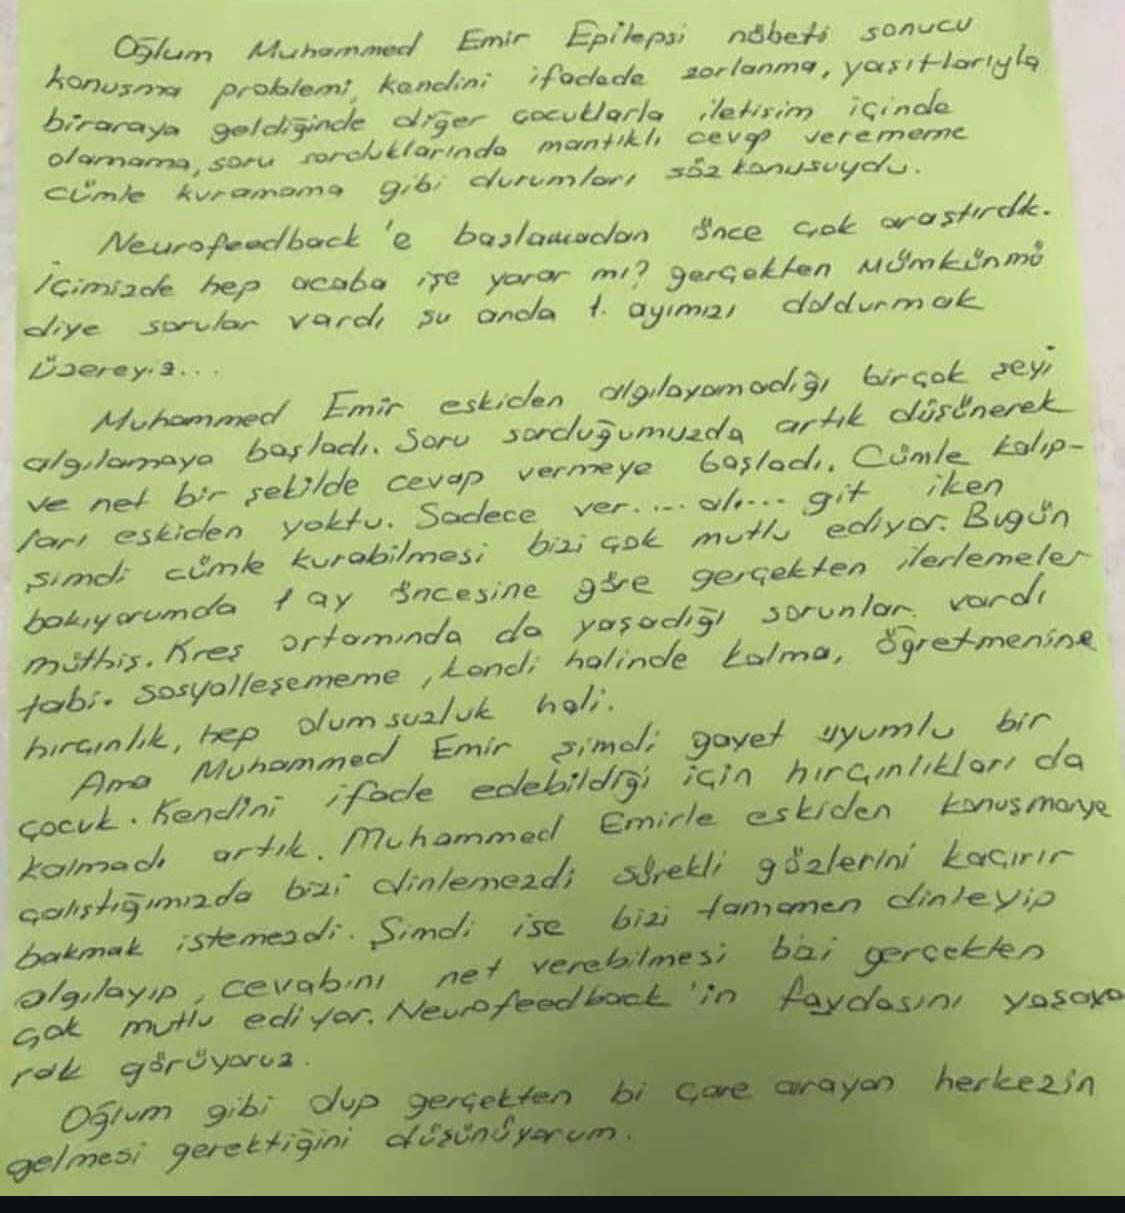 Oğlum Muhammed Emir Epilepsi nöbeti sonucu
konuşma problemi, kendini ifadede zorlanma, yaşıtlarıyla
biraraya geldiğinde diğer çocuklarla iletişim içinde
olamama, soru sorduklarında mantıklı cevap verememe
cümle kuramama gibi durumları söz konusuydu.
Neurofeedback'e başlamadan önce çok araştırdık.
İçimizde hep acaba işe yarar mı? gerçekten Mümkünmü
diye sorular vardı şu anda 1. ayımızı doldurmak
üzereyiz...
Muhammed Emir eskiden algılayamadığı birçok şeyi
algılamaya başladı. Soru sorduğumuzda artık düşünerek
ve net bir şekilde cevap vermeye başladı. Cümle kalıp-
ları eskiden yoktu. Sadece ver.... al.... git iken
şimdi cümle kurabilmesi bizi çok mutlu ediyor. Bugün
bakıyorumda 1 ay öncesine göre gerçekten ilerlemeler
müthiş. Kreş ortamında da yaşadığı sorunlar vardı
tabi. Sosyalleşememe, kendi halinde kalma, öğretmenine
hırçınlık, hep olumsuzluk hali.
Ama Muhammed Emir şimdi gayet uyumlu bir
çocuk. Kendini ifade edebildiği için hırçınlıkları da
kalmadı artık. Muhammed Emirle eskiden konuşmaya
çalıştığımızda bizi dinlemezdi sürekli gözlerini kaçırır
bakmak istemezdi. Şimdi ise bizi tamamen dinleyip
algılayıp, cevabını net verebilmesi bizi gerçekten
çok mutlu ediyor. Neurofeedback'in faydasını yaşaya
rak görüyoruz.
Oğlum gibi olup gerçekten bi çare arayan herkezin
gelmesi gerektiğini düşünüyorum.